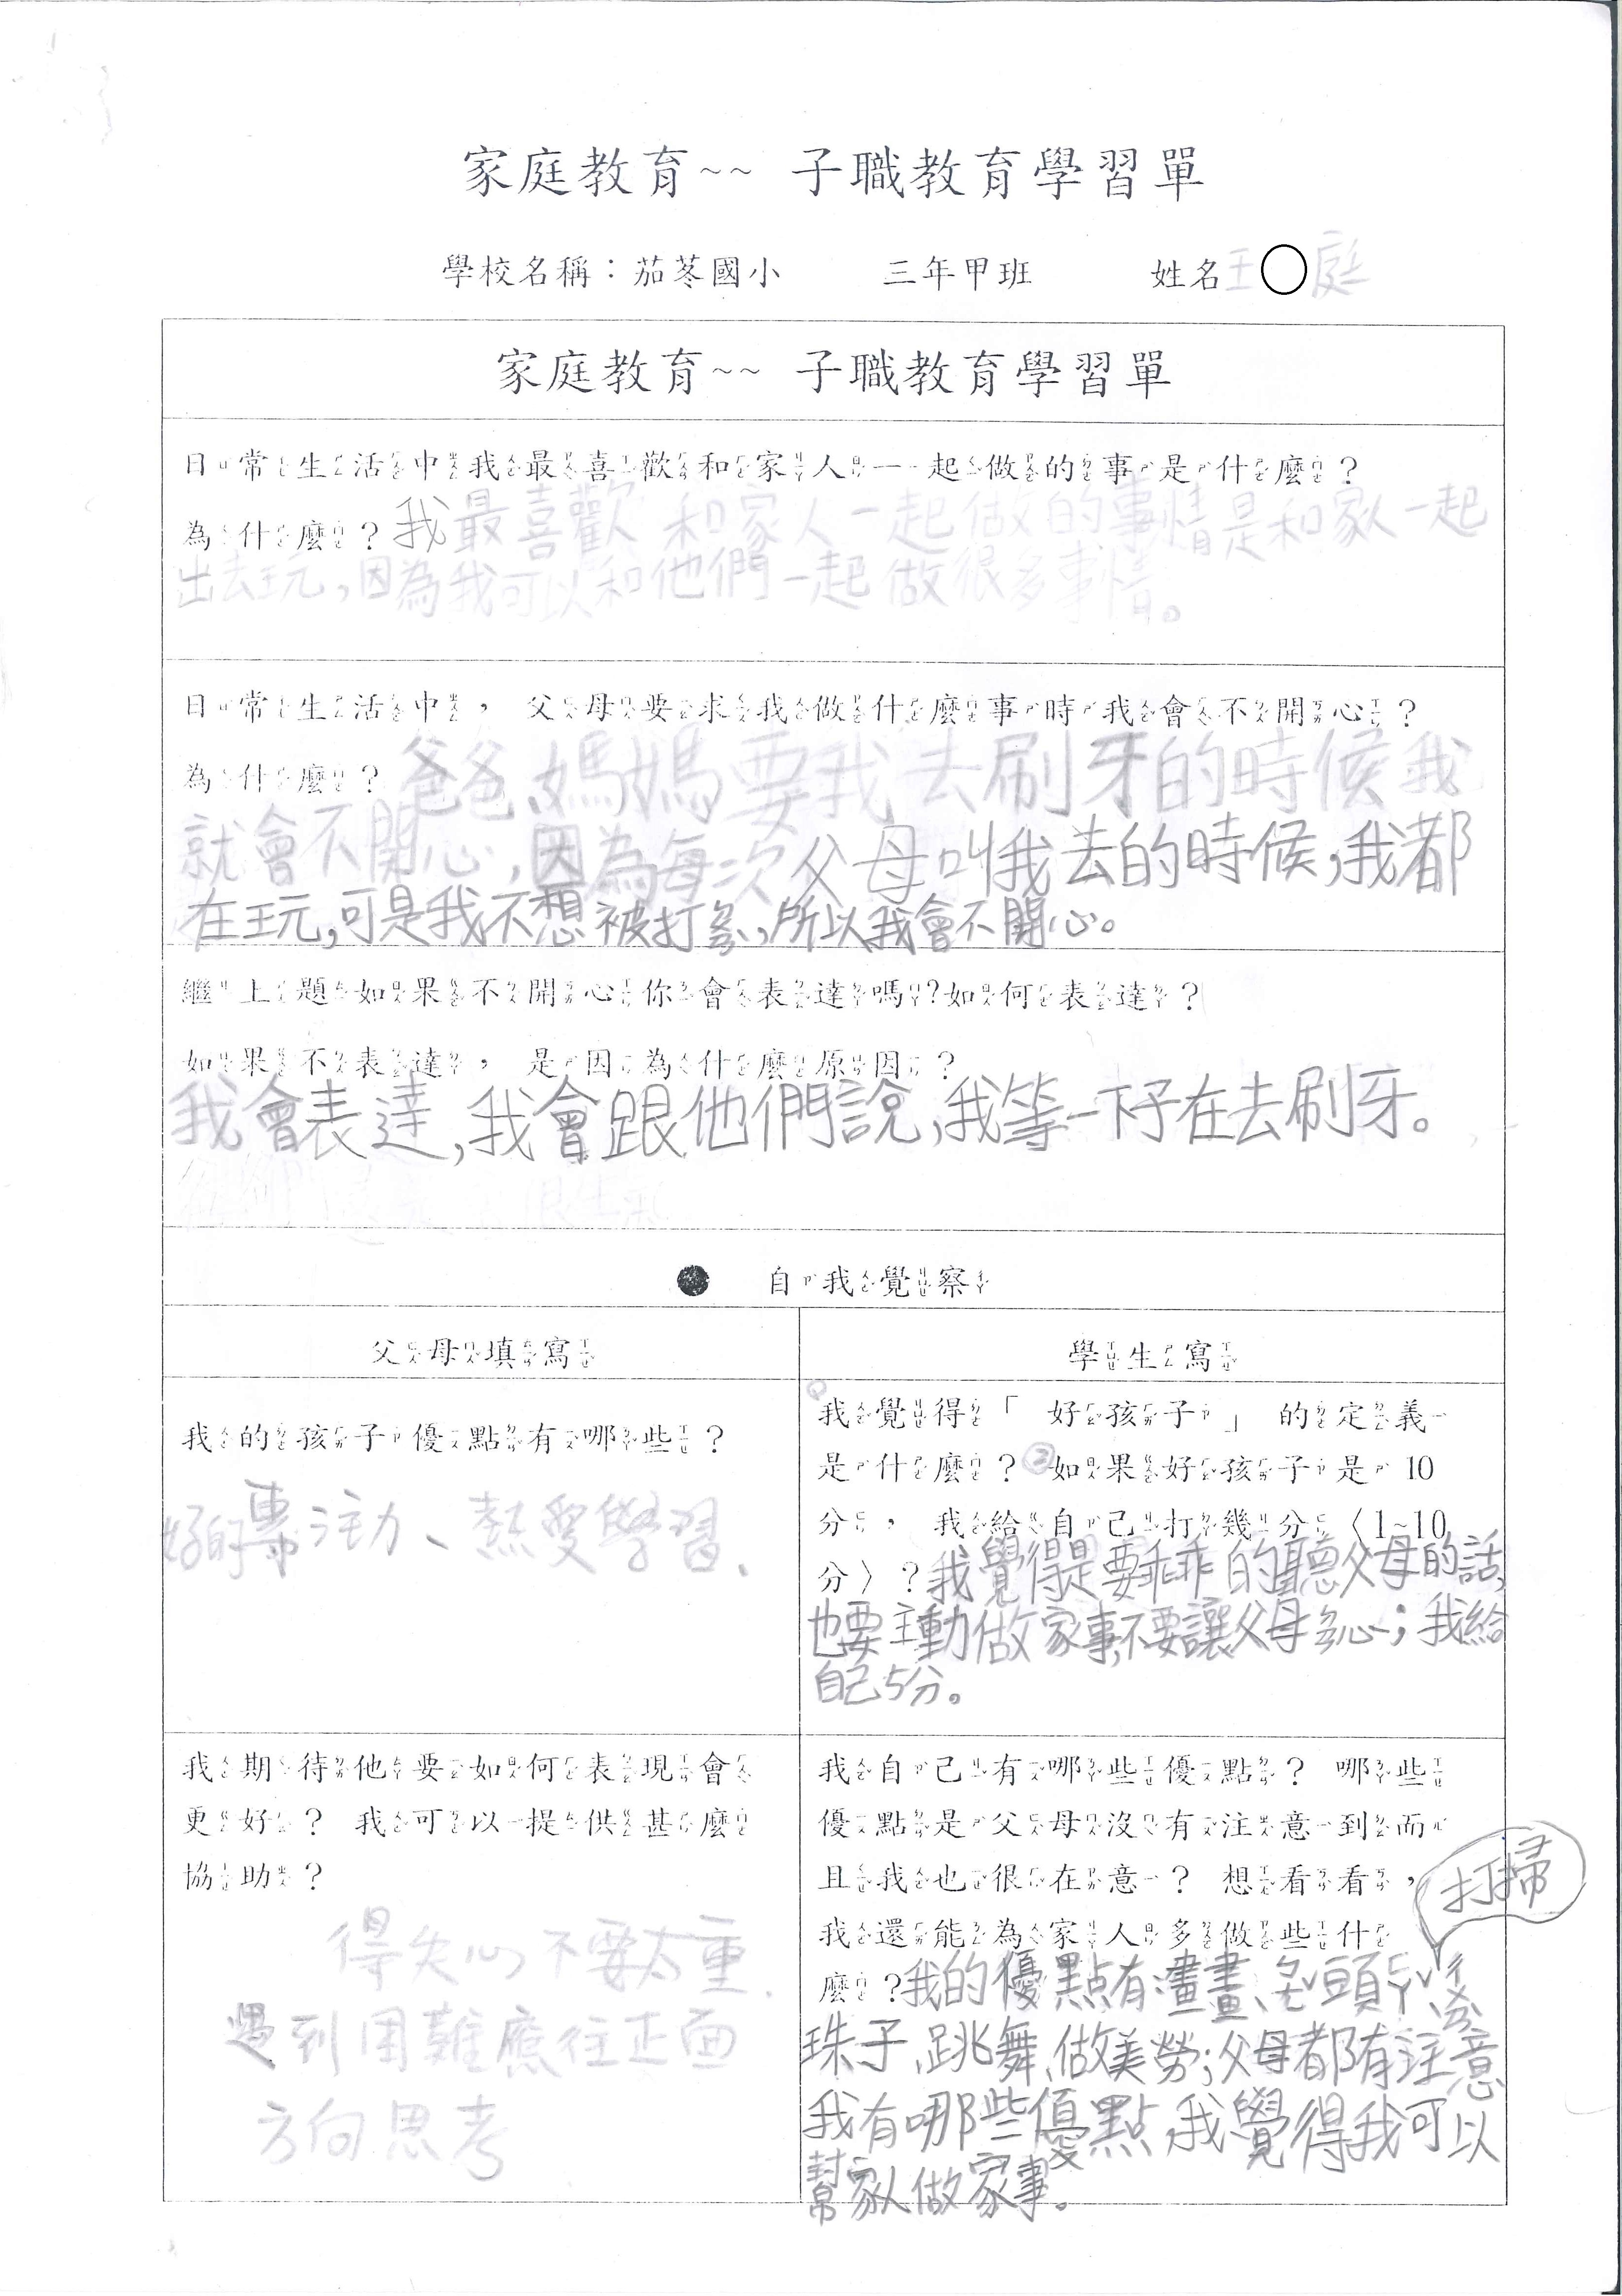 家庭教育~~ 子職教育學習單
學校名稱：茄苳國小 三年甲班 姓名王○庭
家庭教育~~ 子職教育學習單
日常生活中我最喜歡和家人一起做的事是什麼？
為什麼？我最喜歡和家人一起做的事情是和家人一起
出去玩，因為我可以和他們一起做很多事情。
日常生活中，父母要求我做什麼事時我會不開心？
為什麼？爸爸、媽媽要我去刷牙的時候我
就會不開心，因為每次父母叫我去的時候，我都
在玩，可是我不想被打ㄖㄠˇ，所以我會不開心。
繼上題如果不開心你會表達嗎?如何表達？
如果不表達，是因為什麼原因？
我會表達，我會跟他們說，我等一下子在去刷牙。
● 自我覺察
父母填寫
學生寫
我的孩子優點有哪些？
好的專注力、熱愛學習、
我覺得「好孩子」的定義
是什麼？②如果好孩子是 10
分，我給自己打幾分〈1~10
分〉？我覺得是要乖乖的聽父母的話，
也要主動做家事，不要讓父母心；我給
自己5分。
我期待他要如何表現會
更好？ 我可以提供甚麼
協助？
得失心不要太重，
遇到困難應往正面
方向思考
我自己有哪些優點？ 哪些
優點是父母沒有注意到而
且我也很在意？ 想看看，
打掃
我還能為家人多做些什
麼？我的優點有畫畫、頭
珠子、跳舞、做美勞；父母都有注意
我有哪些優點，我覺得我可以
幫家人做家事。